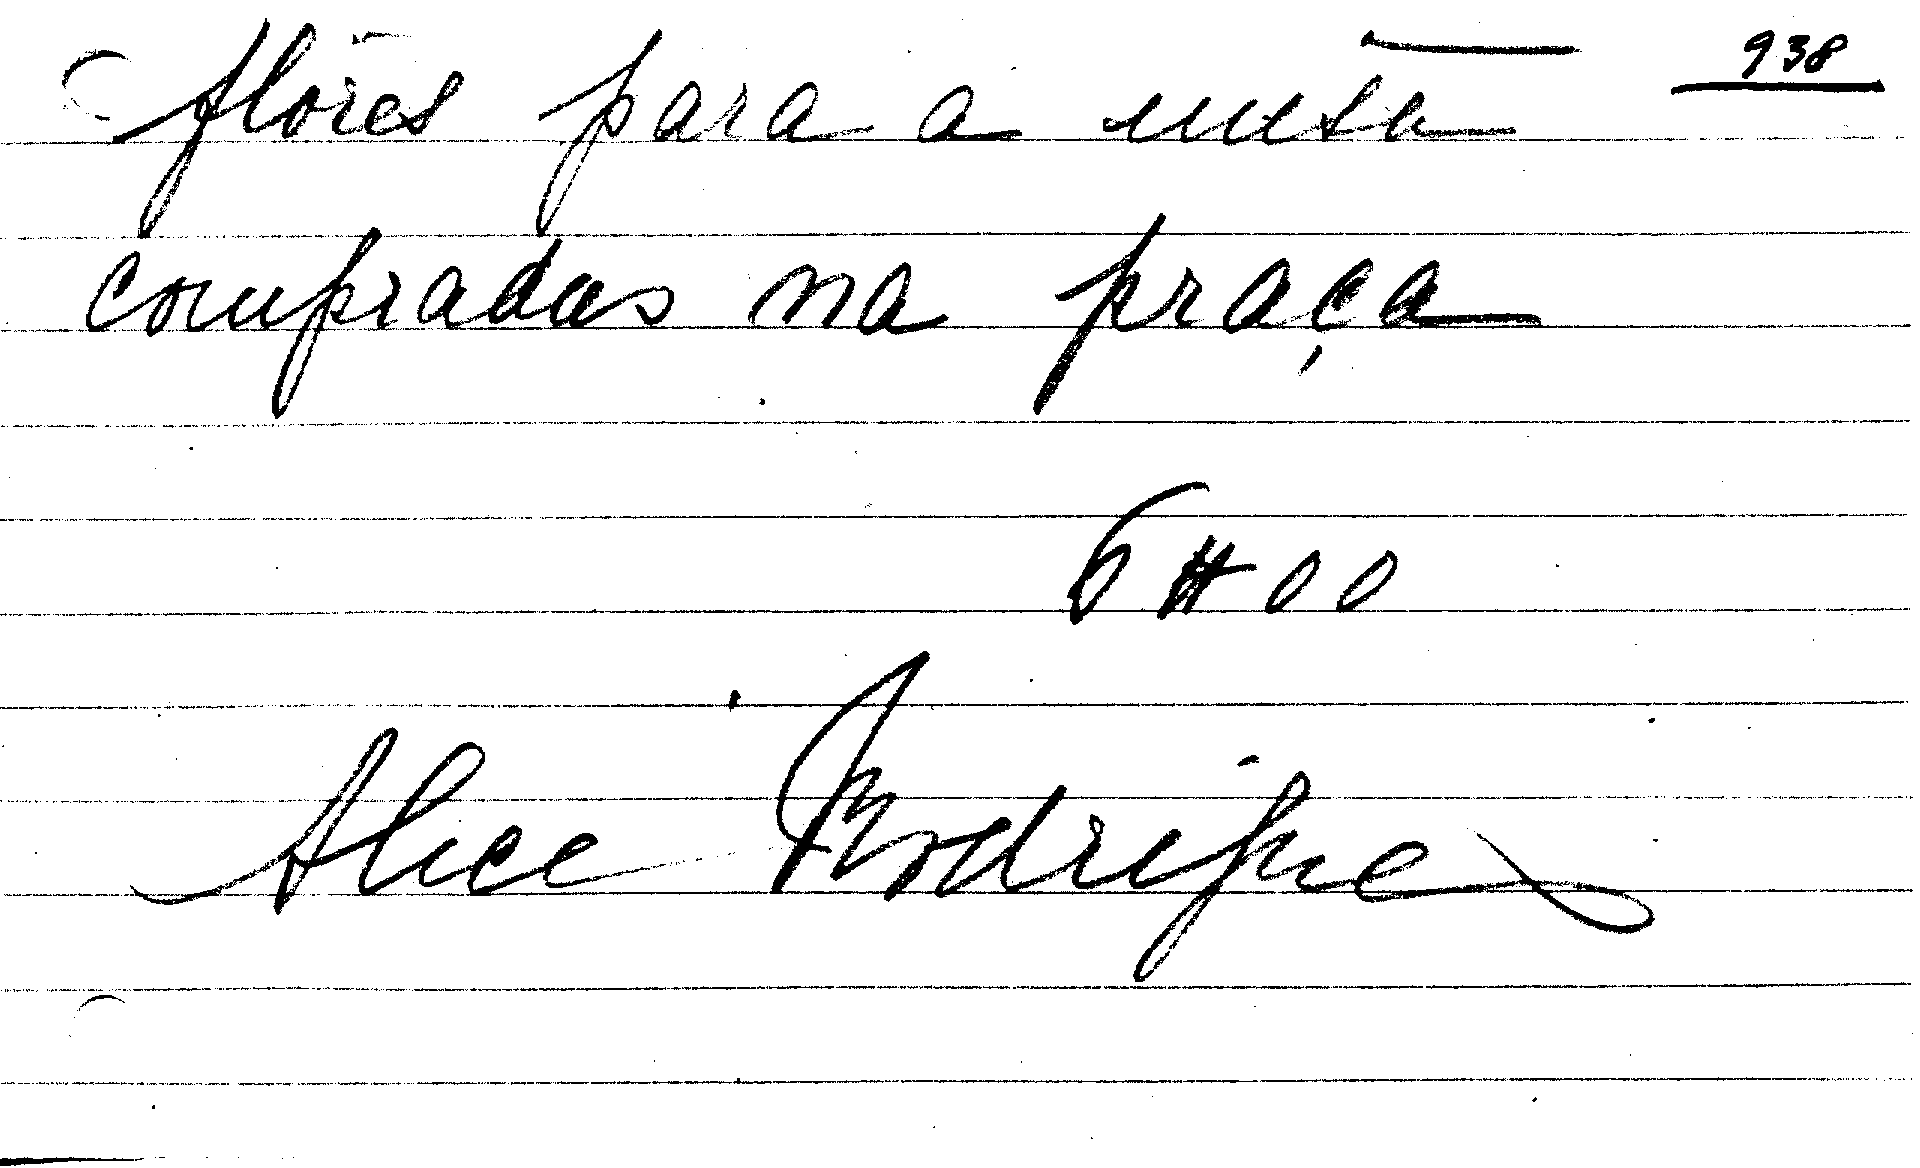 938
flôres para a mesa
compradas na praça
6#00
Alice Rodrigues